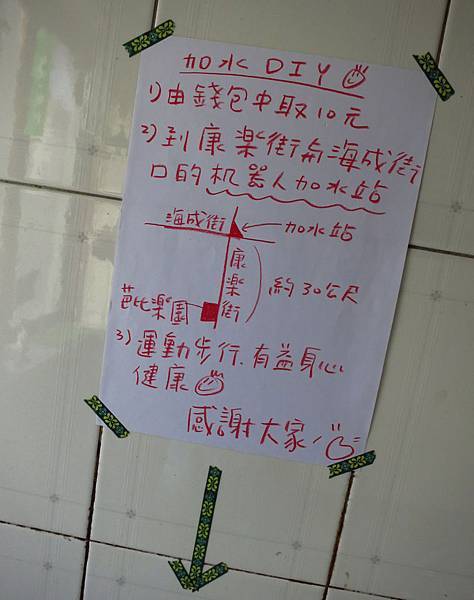 加水DIY
1)由錢包中取10元
2)到康楽街与海成街
口的机器人加水站
海成街
加水站
康楽街
約30公尺
芭比楽園
3)運動步行.有益身心
健康
感謝大家!